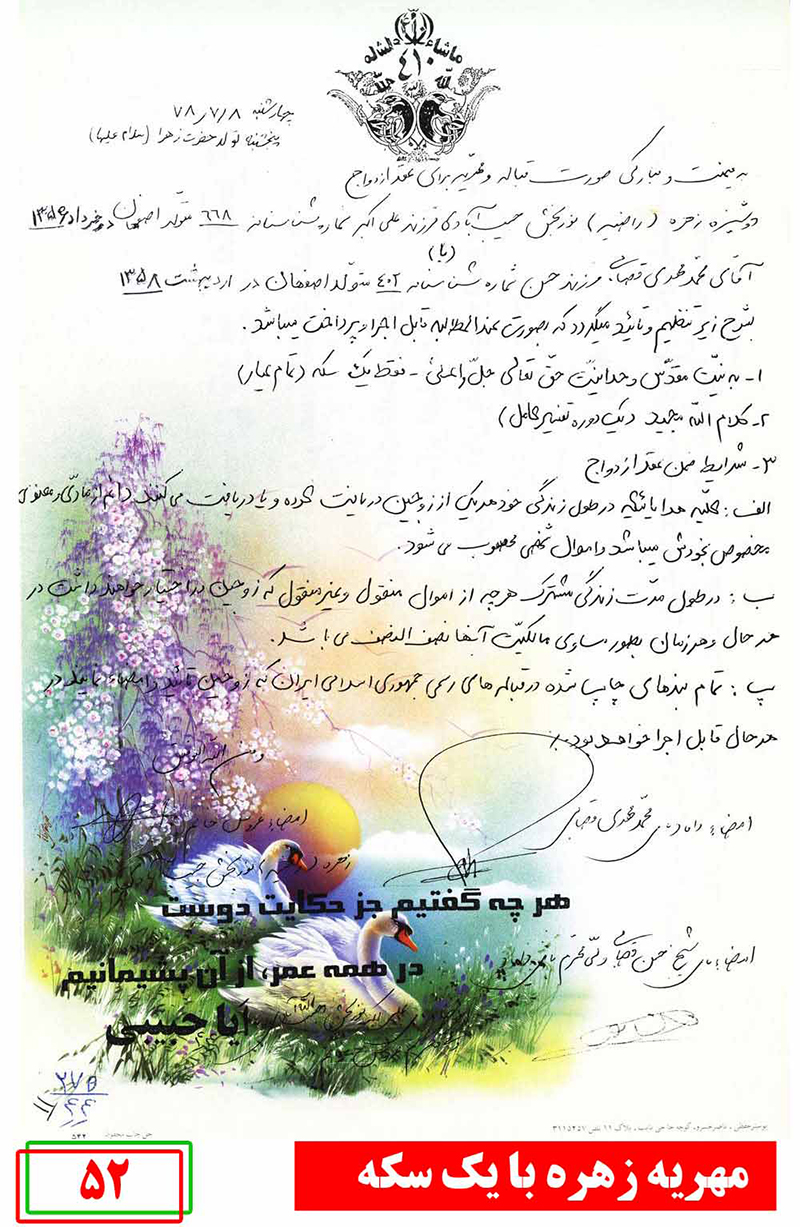 ماشاء الله
٤١٠
چهارشنبه ۷۸/۷/۸
پنجشنبه تولد حضرت زهرا (سلام علیها)
به میمنت و مبارکی صورت قباله و مهریه برای عقد ازدواج
دوشیزه زهره (راضیه) نوربخش حبیب آبادی فرزند علی اکبر شماره شناسنامه ۶۶۸ متولد اصفهان در خرداد ۱۳۵۶
(با)
آقای محمد مهدی قصابی فرزند حسن شماره شناسنامه ۴۰۲ متولد اصفهان در اردیبهشت ۱۳۵۸
بشرح زیر تنظیم و تائید میگردد که بصورت عندالمطالبه قابل اجرا و پرداخت میباشد.
۱- به نیت مقدس وحدانیت حق تعالی جلّ و اعلی - فقط یک سکه (تمام عیار)
۲- کلام الله مجید (یک دوره تفسیر کامل)
۳- شرایط ضمن عقد ازدواج
الف: کلیه هدایائیکه در طول زندگی خود هر یک از زوجین دریافت کرده و یا دریافت می کنند اعم از مادی و معنوی
بخصوص بخودش میباشد و اموال شخصی محصوب می شود.
ب: در طول مدت زندگی مشترک هر چه از اموال منقول و غیر منقول که زوجین در اختیار خواهند داشت در
هر حال و هر زمان بطور مساوی مالکیّت آنها نصف النصف می باشد.
پ: تمام بندهای چاپ شده در قباله های رسمی جمهوری اسلامی ایران که زوجین تائید و امضاء نمایند در
هر حال قابل اجرا خواهد بود.
و من الله التوفیق
امضاء داماد محمد مهدی قصابی
امضاء عروس خانم
زهره (راضیه) نوربخش حبیب
هر چه گفتیم جز حکایت دوست
در همه عمر، از آن پشیمانیم
امضاء آقای شیخ حسن قصابی ولی محترم
آیا حبیبی
۲۷۵
۴۴
۱۱
۵۴۲
حق چاپ محفوظ
ناصرخسرو، کوچه حاجی نایب، پلاک ۱۱ تلفن ۳۱۱۵۲۵۷
مهریه زهره با یک سکه
۵۲